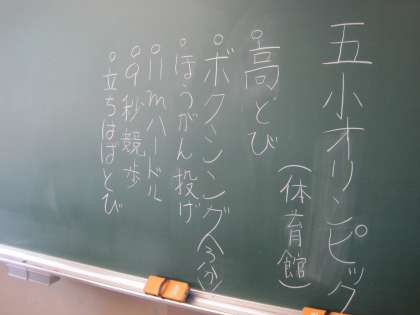 五小オリンピック
(体育館)
°高とび
°ボクシング(うが)
°ほうがん投げ
°11mハードル
°9秒競歩
°立ちはばとび